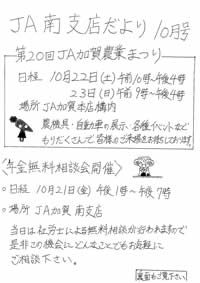 JA南支店だより 10月号
第20回JA加賀農業まつり
日程 10月22日(土)午前10時〜午後4時
23日(日)午前9時〜午後4時
場所 JA加賀本店構内
農機具・自動車の展示、各種イベントなど
もりだくさんで、皆様のご来場をお待ちしております。
《年金無料相談会開催》
○日程 10月21日(金)午後1時〜午後7時
○場所 JA加賀 南支店
当日は社労士による無料相談が行われますので
是非この機会にどんなことでもお気軽に
ご相談下さい。
裏面もご覧下さい